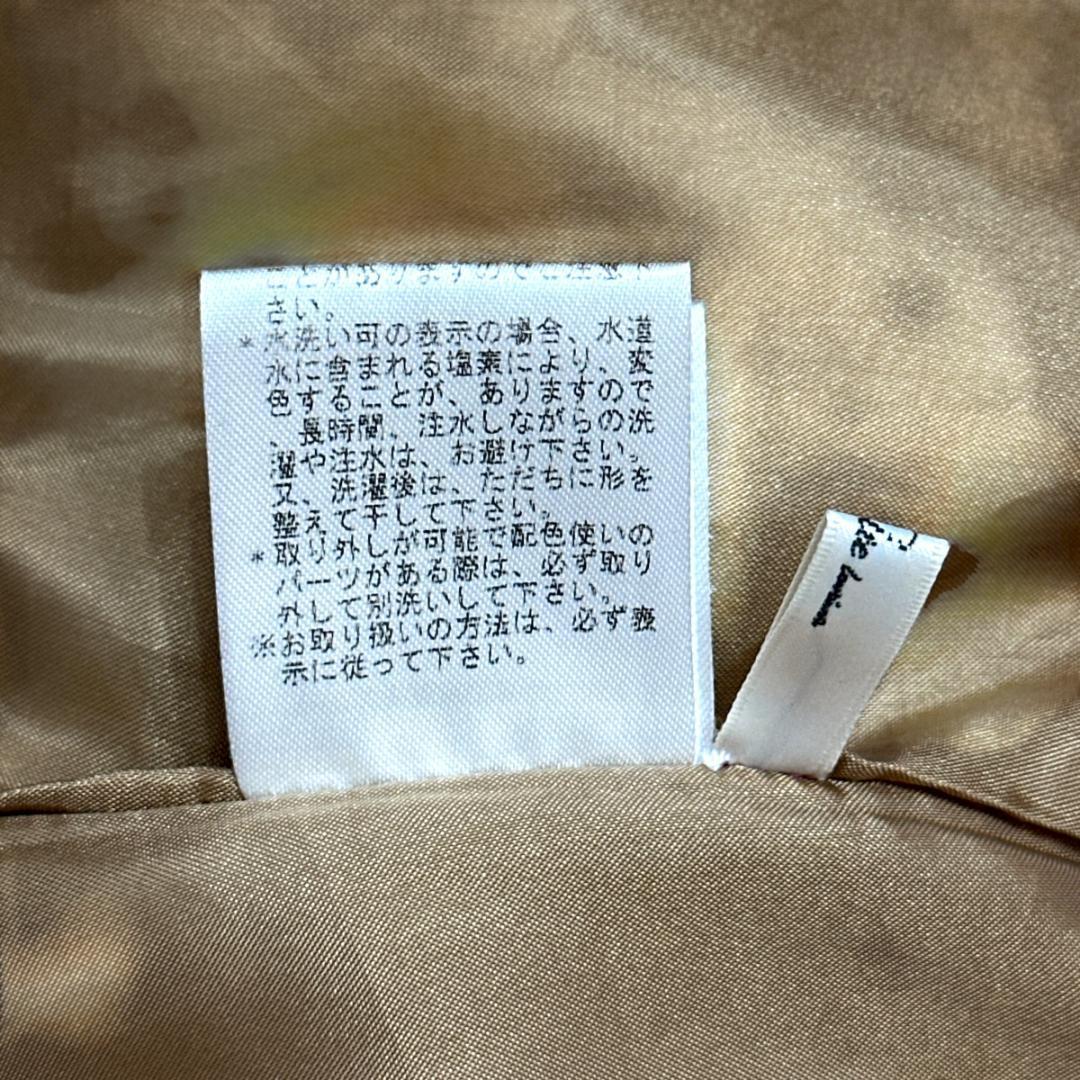 ことがありますのでご注意下
さい。
* 水洗い可の表示の場合、水道
水に含まれる塩素により、変
色することが、ありますので
、長時間、注水しながらの洗
濯や注水は、お避け下さい。
又、洗濯後は、ただちに形を
整えて干して下さい。
* 取り外しが可能で配色使いの
パーツがある際は、必ず取り
外して別洗いして下さい。
※お取り扱いの方法は、必ず表
示に従って下さい。